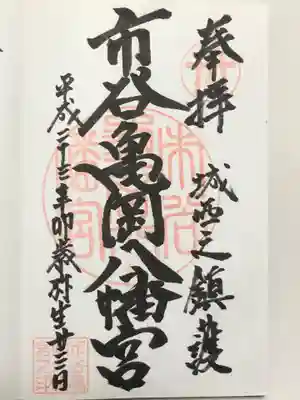 奉拝
城西之鎮護
市谷亀岡八幡宮
平成二十三年卯歳弥生廿三日